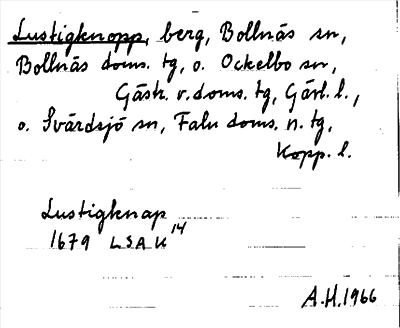 Lustigknopp, berg, Bollnäs sn,
Bollnäs doms. tg, o. Ockelbo sn,
Gästr. v. doms. tg, Gävl. l.,
o. Svärdsjö sn, Falu doms. n. tg,
Kopp. l.
Lustigknap
1679 LSA K 14
A.H. 1966